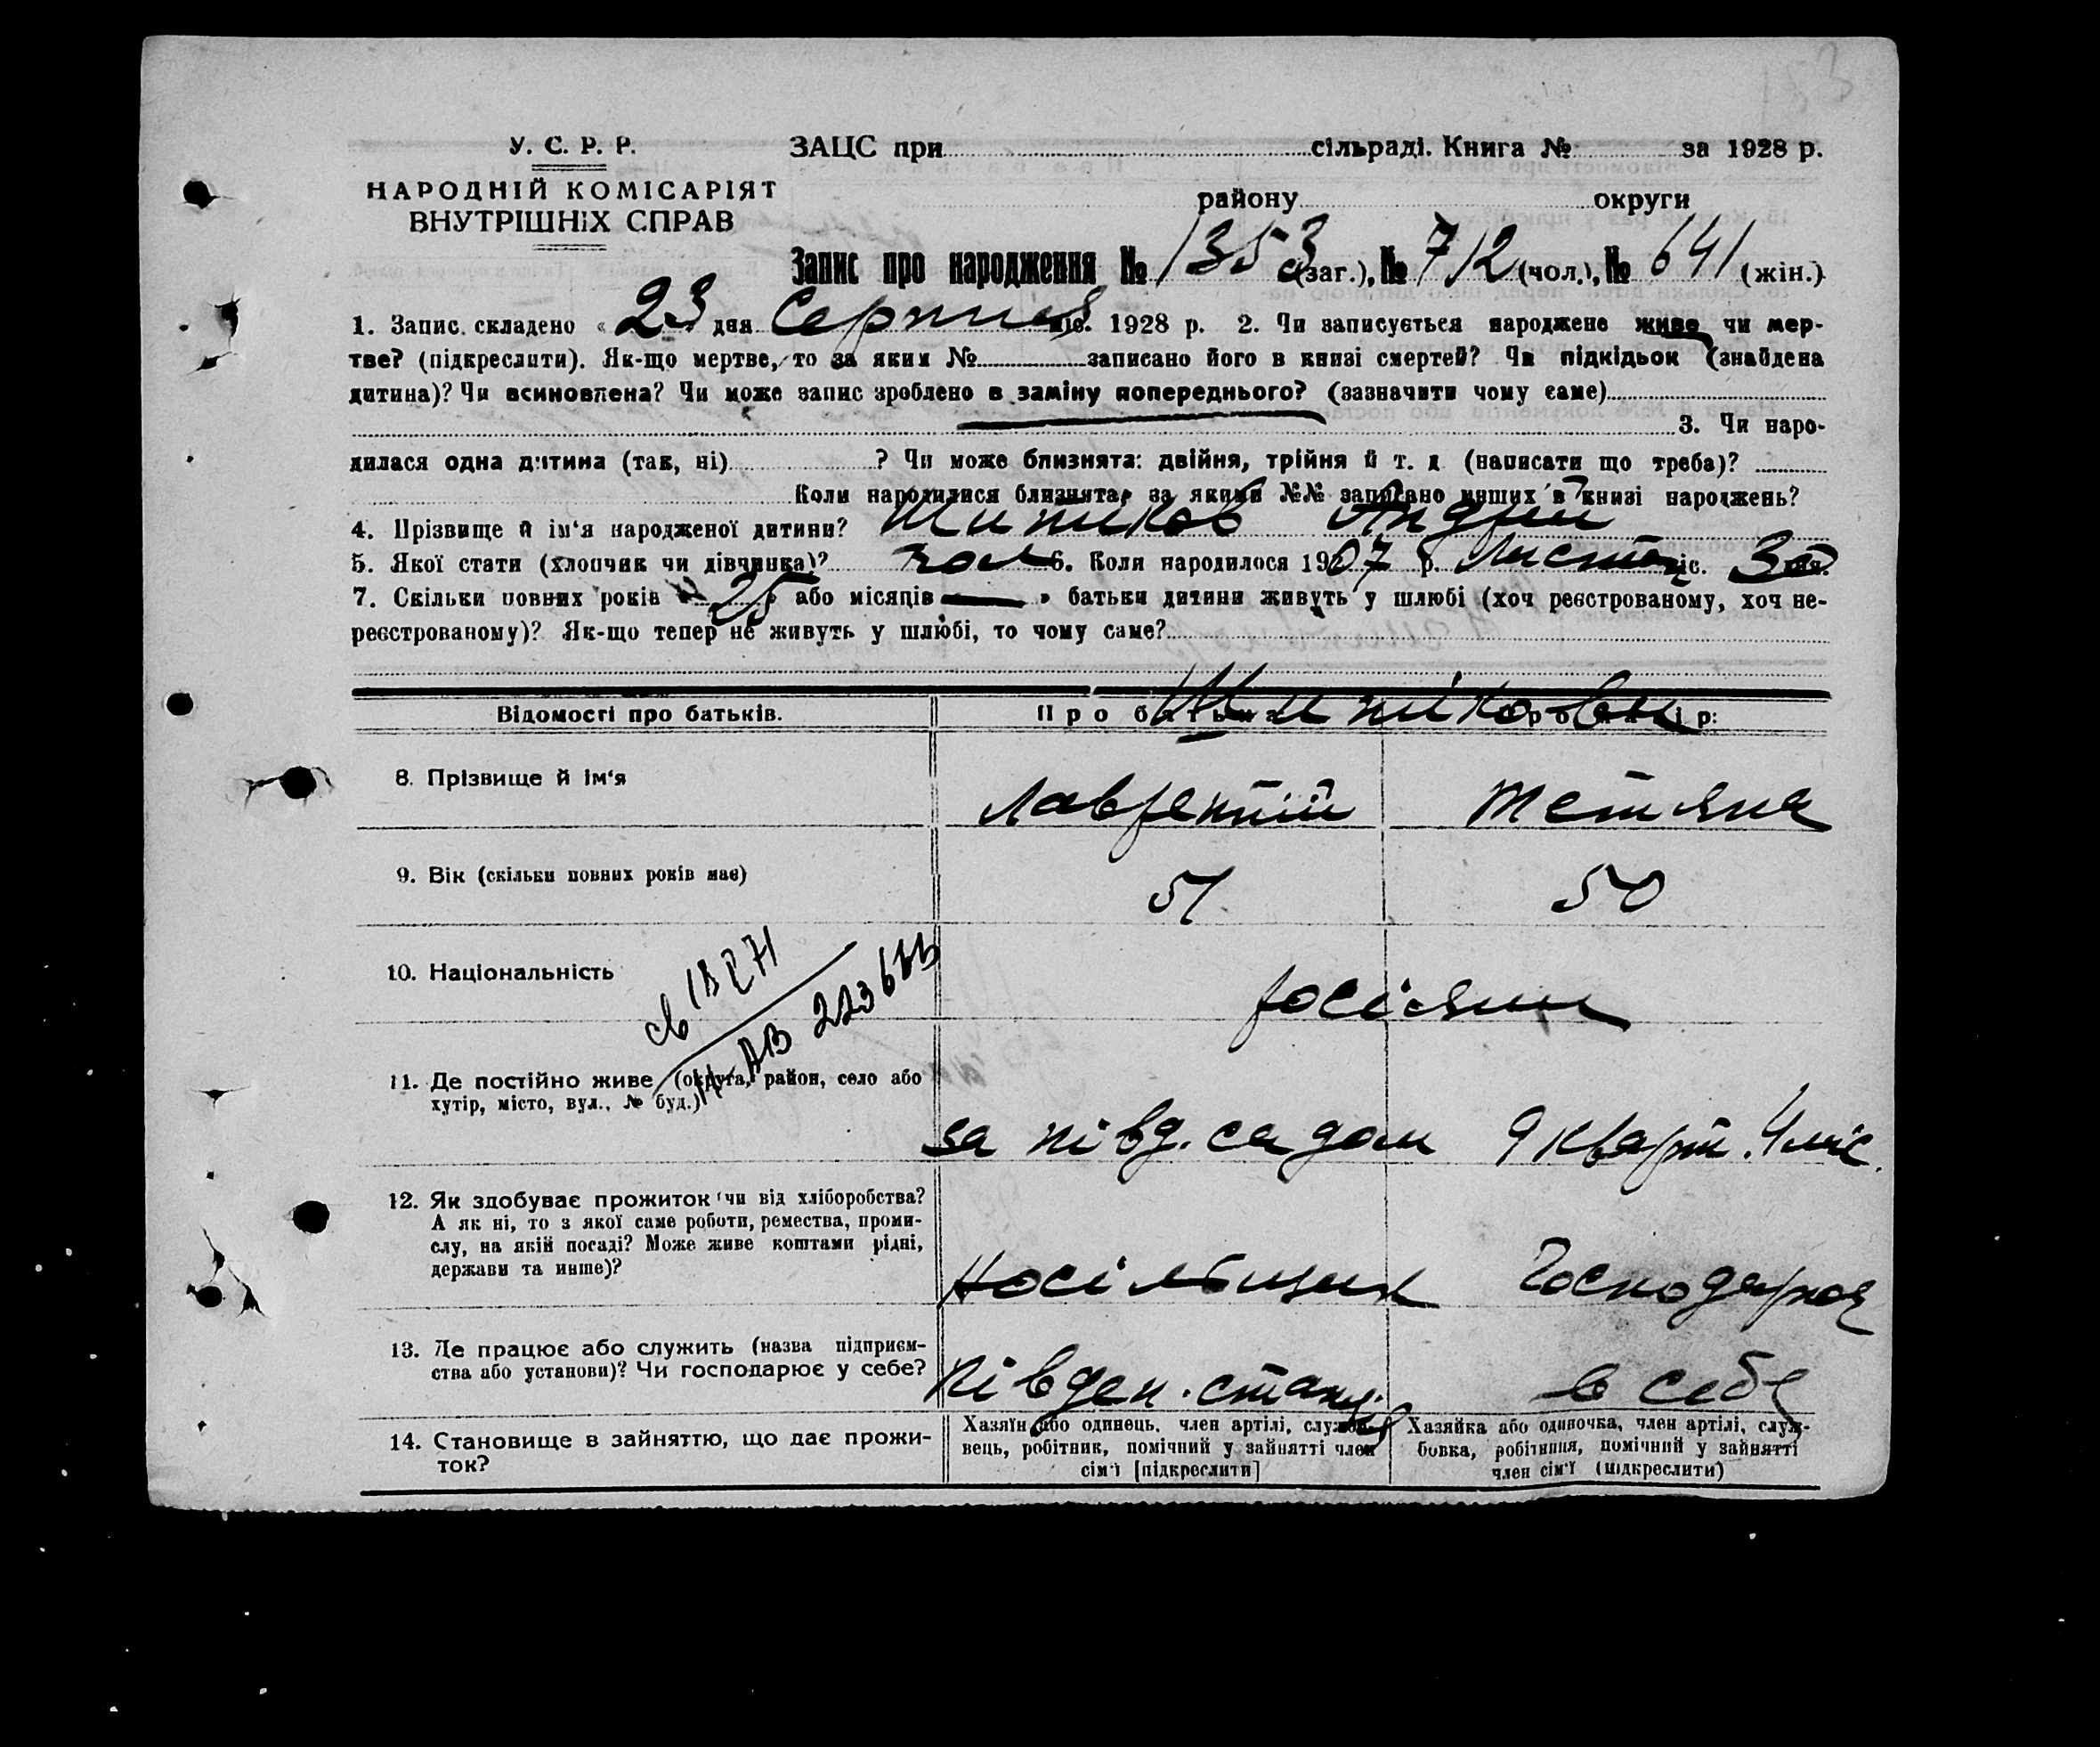 У. С. Р. Р.
НАРОДНІЙ КОМІСАРІЯТ
ВНУТРІШНІХ СПРАВ
ЗАЦС при сільраді. Книга № за 1928 р.
району округи
Запис про народження № 1353 (заг.), № 712 (чол.), № 641 (жін.)
1. Запис складено « 23 дня Серпня міс. 1928 р. 2. Чи записується народжене живе чи мер-
тве? (підкреслити). Як-що мертве, то за яким № записано його в книзі смертей? Чи підкідьок (знайдена
дитина)? Чи всиновлена? Чи може запис зроблено в заміну попереднього? (зазначити чому саме)
3. Чи наро-
дилася одна дитина (так, ні) ? Чи може близнята: двійня, трійня й т. д (написати що треба)?
Коли народилися близнята, за якими №№ записано инших в книзі народжень?
4. Прізвище й ім'я народженої дитини? Андрій
5. Якої стати (хлопчик чи дівчинка)? чол 6. Коли народилося 1907 р. Листоп міс. 30 дня.
7. Скільки повних років « 25 » або місяців « — » батьки дитини живуть у шлюбі (хоч реєстрованому, хоч не-
реєстрованому)? Як-що тепер не живуть у шлюбі, то чому саме?
Відомості про батьків. Про батька Про матір:
8. Прізвище й ім'я Лаврентій Тетяна
9. Вік (скільки повних років має) 51 50
10. Національність росіяни
11. Де постійно живе (округа, район, село або
хутір, місто, вул., № буд.)
за півд. садом 9 кварт. 4 міс.
12. Як здобуває прожиток чи від хліборобства?
А як ні, то з якої саме роботи, ремества, проми-
слу, на якій посаді? Може живе коштами рідні,
держави та инше)?
Носільщик Господарює
13. Де працює або служить (назва підприєм-
ства або установи)? Чи господарює у себе?
Півден. станц. в себе
14. Становище в зайняттю, що дає прожи-
ток?
Хазяїн або одинець, член артілі, службо-
вець, робітник, помічний у зайнятті член
сім'ї [підкреслити]
Хазяйка або одиночка, член артілі, служ-
бовка, робітниця, помічний у зайнятті
член сім'ї (підкреслити)